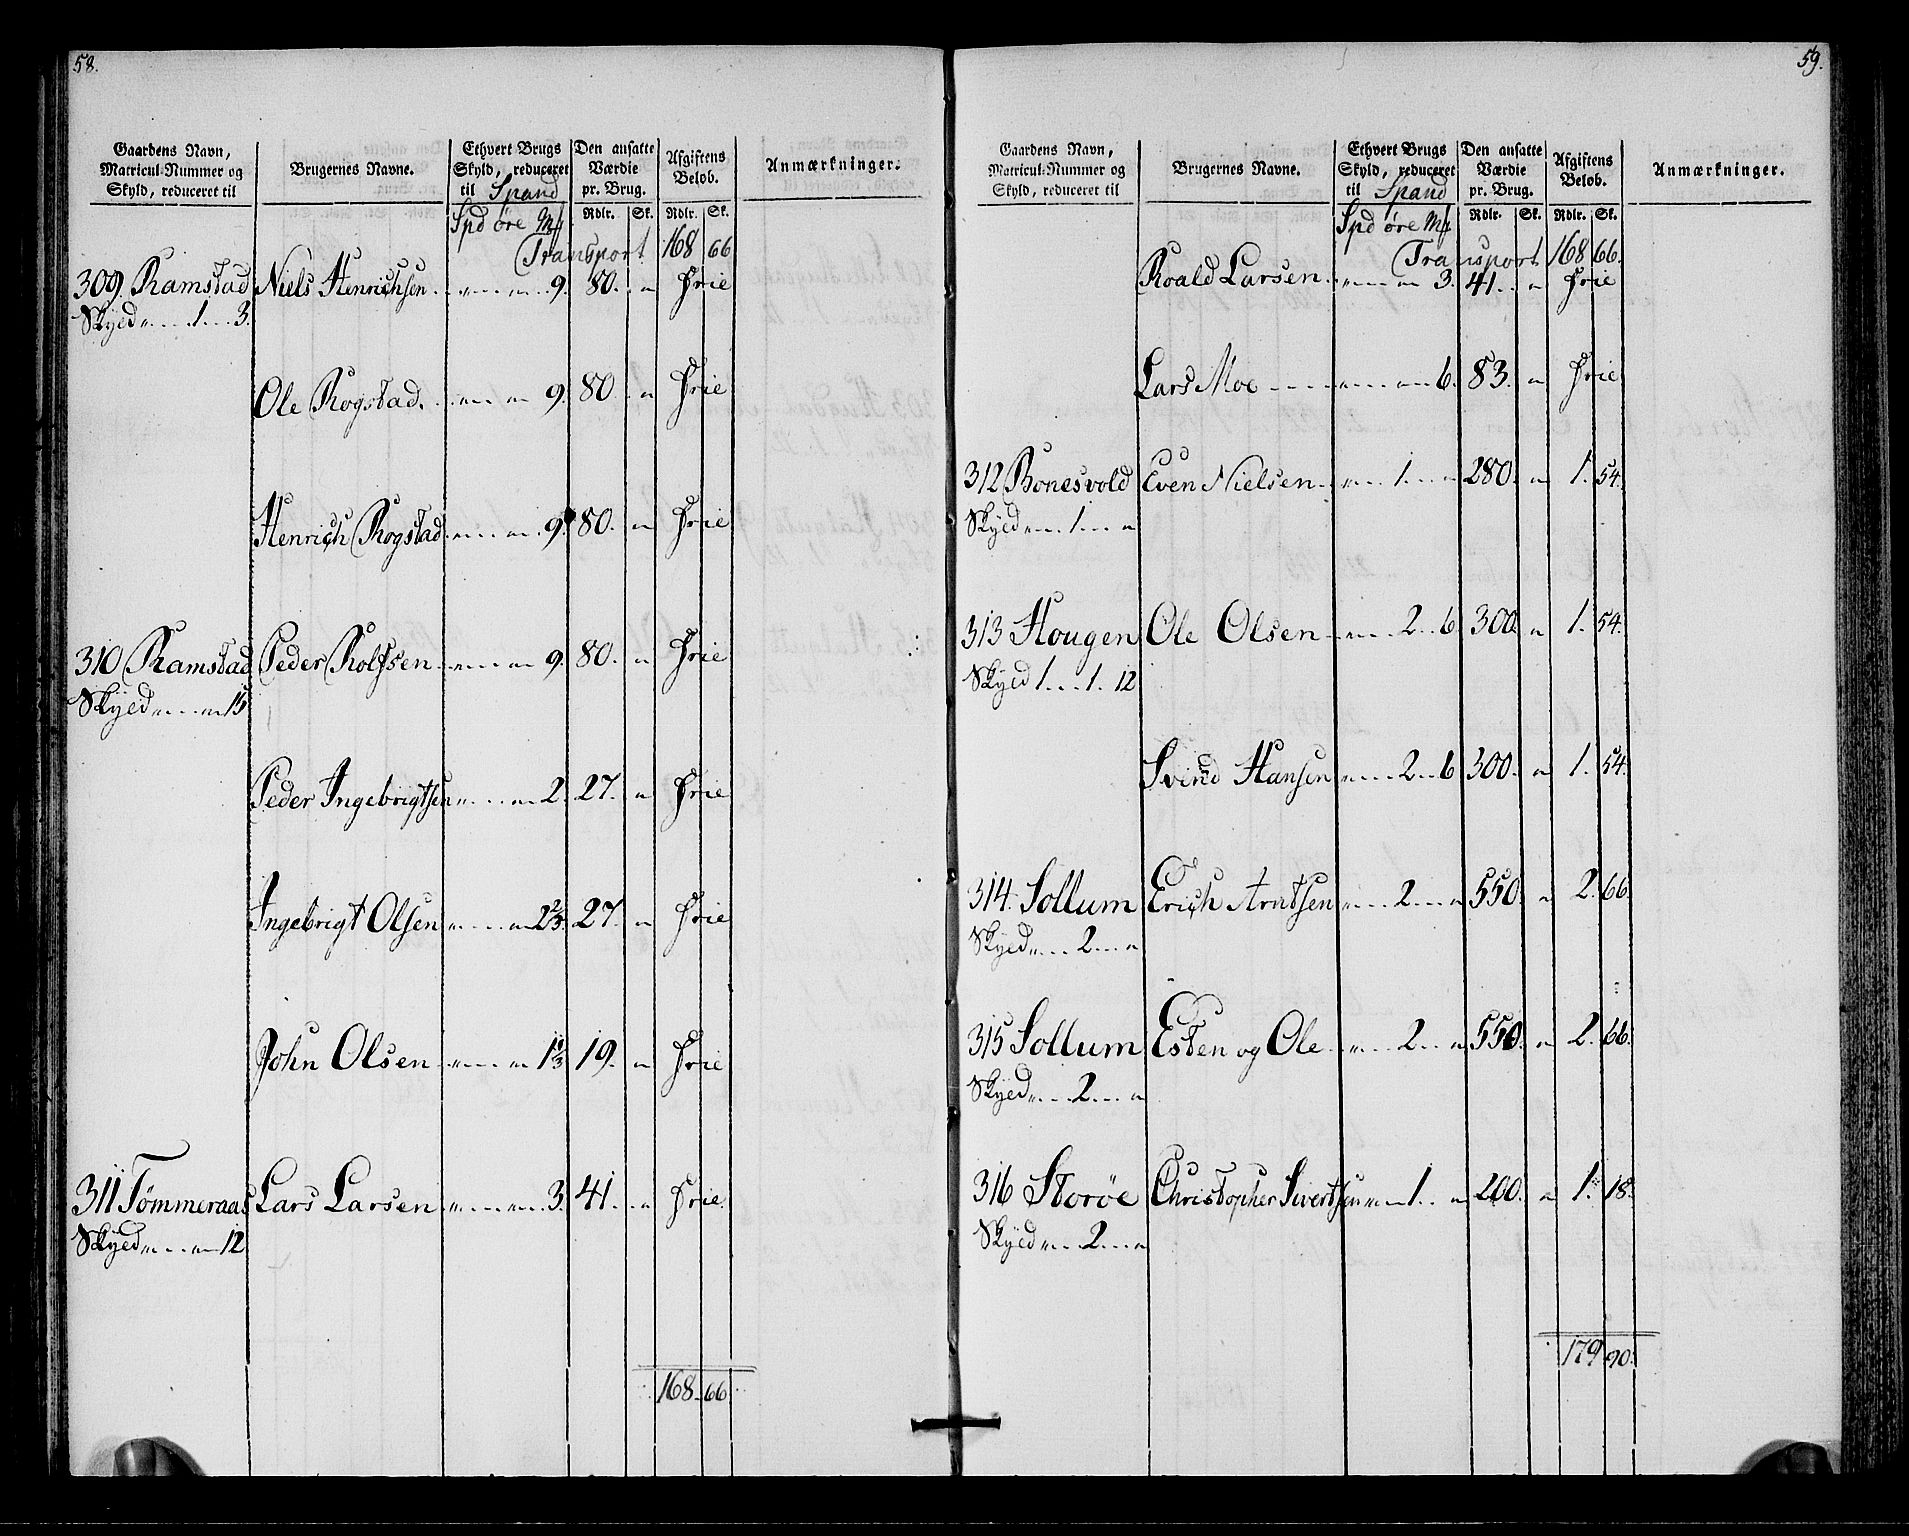 58.
Gaardens Navn, Matricul-Nummer og Skyld, reduceret til
Brugernes Navne.
Ethvert Brugs Skyld, reduceret til Spand
Den ansatte Værdie pr. Brug.
Afgiftens Beløb.
Anmærkninger.
Spd øre Mk
Rdlr. Sk. Rdlr. Sk.
Transport 168 66
309. Ramstad Niels Henrichsen 9. 80. " Frie
Skyld " 1 3.
Ole Rogstad. " " 9. 80 " Frie
Henrich Rogstad " " 9. 80. " Frie
310 Ramstad Peder Rolfsen " " 9. 80. " Frie
Skyld " " 15
Peder Ingebrigtsen " " 2. 27. " Frie
Ingebrigt Olsen " " 2 2/3. 27. " Frie
John Olsen " " 1 1/3 19. " Frie
311 Tömmeraas Lars Larsen " " 3. 41. " Frie.
Skyld " " 12
168. 66
59.
Gaardens Navn, Matricul-Nummer og Skyld, reduceret til
Brugernes Navne.
Ethvert Brugs Skyld, reduceret til Spand
Den ansatte Værdie pr. Brug.
Afgiftens Beløb.
Anmærkninger.
Spd øre Mk
Rdlr. Sk. Rdlr. Sk.
Transport 168 66.
Roald Larsen " " 3. 41. " Frie
Lars Moe " " 6. 83. " Frie
312 Bonesvold Even Nielsen " 1 " 280. " 1. 54.
Skyld " 1 "
313 Hougen Ole Olsen " 2 6 300. " 1. 54.
Skyld 1 1. 12
Svend Hansen " 2 6 300. " 1. 54.
314. Sollum Erich Arntsen " 2 " 550. " 2. 66.
Skyld " 2 "
315 Sollum Esten og Ole " 2 " 550. " 2. 66.
Skyld " 2 "
316 Storøe Christopher Sivertsen " 1 " 200. " 1. 18.
Skyld " 2 "
179 90.